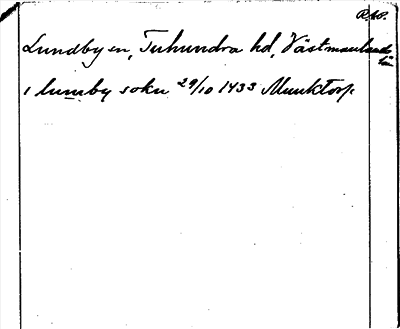 R.A.P.
Lundbyen, Tuhundra hd, Västmanlands
län
i lumby sokn 29/10 1433 Munktorp